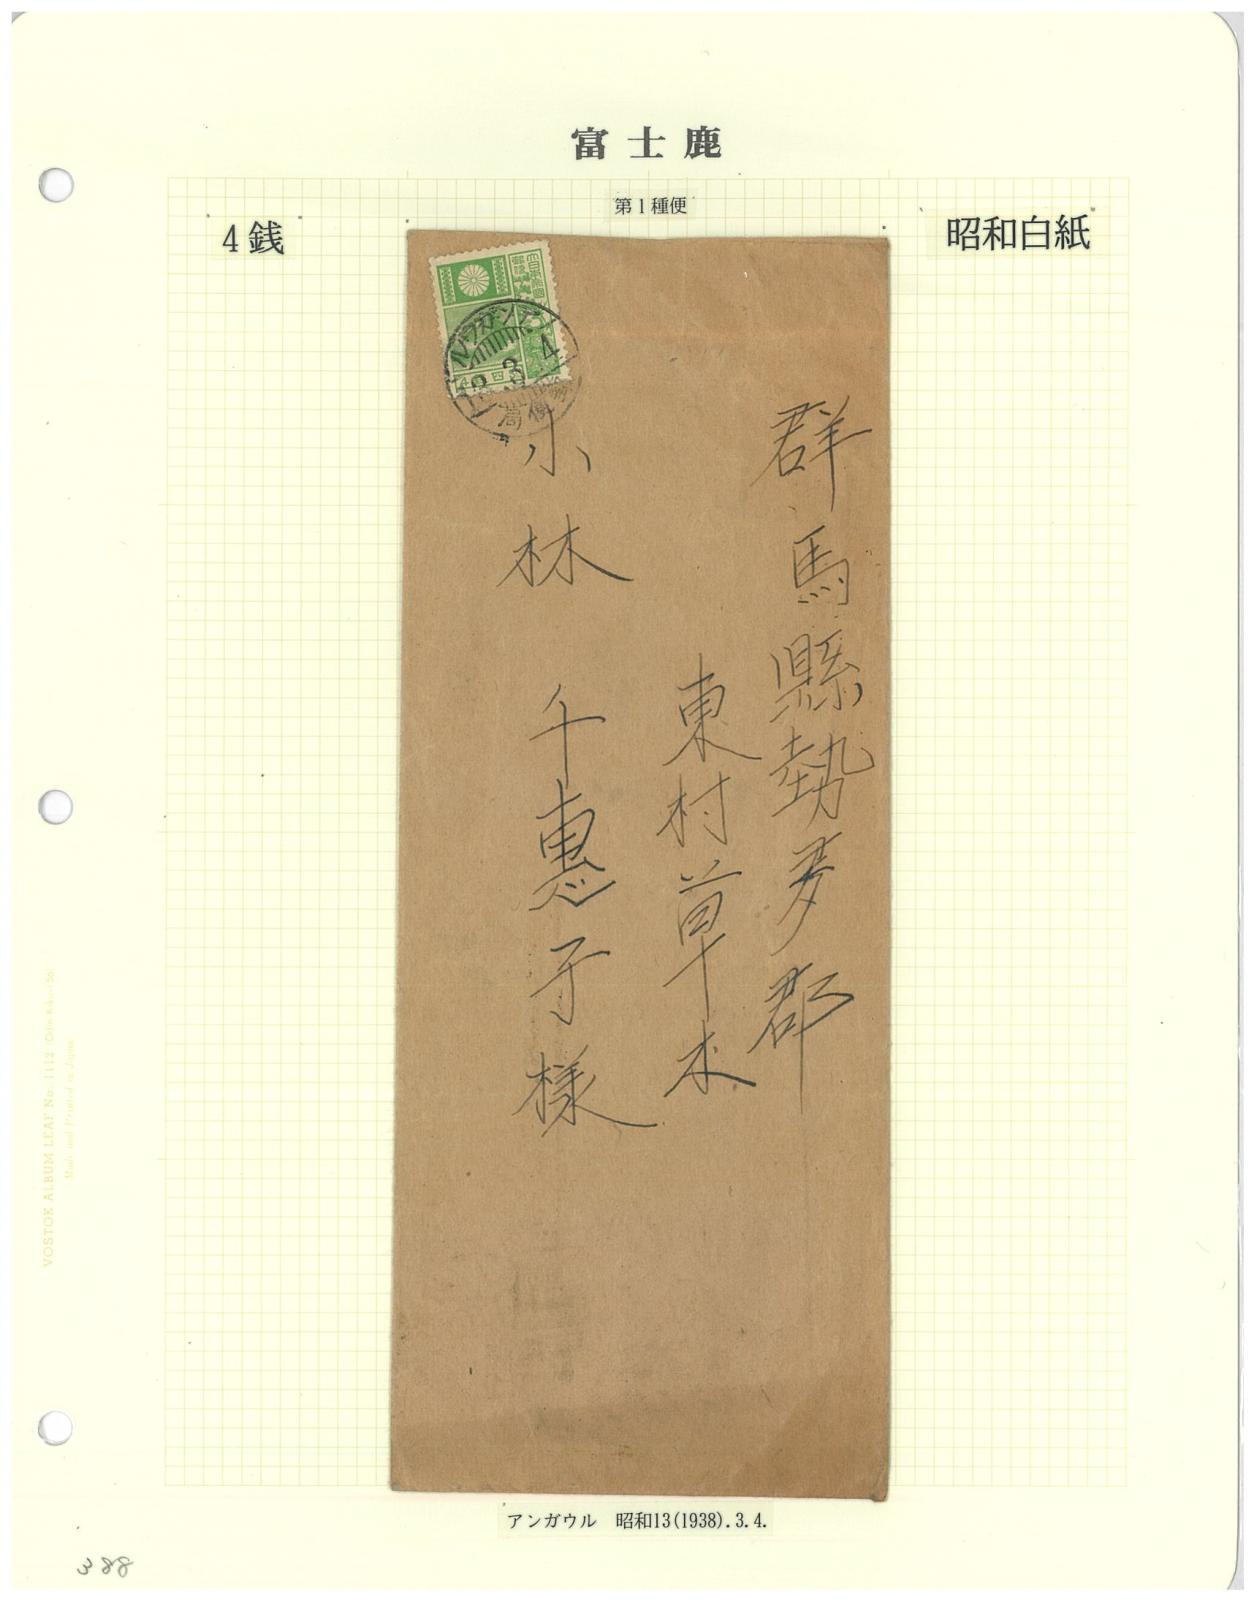 富士鹿
第1種便
4銭
昭和白紙
大日本帝國
郵便
アンガウル
13.3.4
群馬縣勢多郡
東村草木
小林千惠子様
アンガウル 昭和13(1938).3.4.
388
VOSTOK ALBUM LEAF No. 1112
Made and Printed in Japan